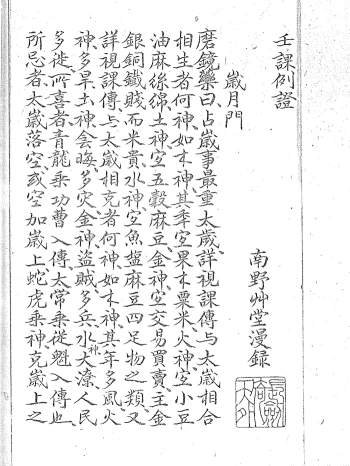 壬課例證
南野艸堂漫録
歲月門
磨鏡藥曰占歲事最重太歲詳視課傳与太歲相合
相生者何神如木神其年宜果木粟米火神宜小豆
油麻絲綿土神宜五穀麻豆金神宜交易買賣主金
銀銅鐵賤而米貴水神宜魚塩麻豆四足物之類又
詳視課傳与太歲相克者何神如木神其年多風火
神多旱土神会晦多灾金神盜賊多兵水神大潦人民
多徙所喜者青龍乘功曹入傳太常乘從魁入傳也
所忌者太歲落空或空加歲上蛇虎乘神克歲上之